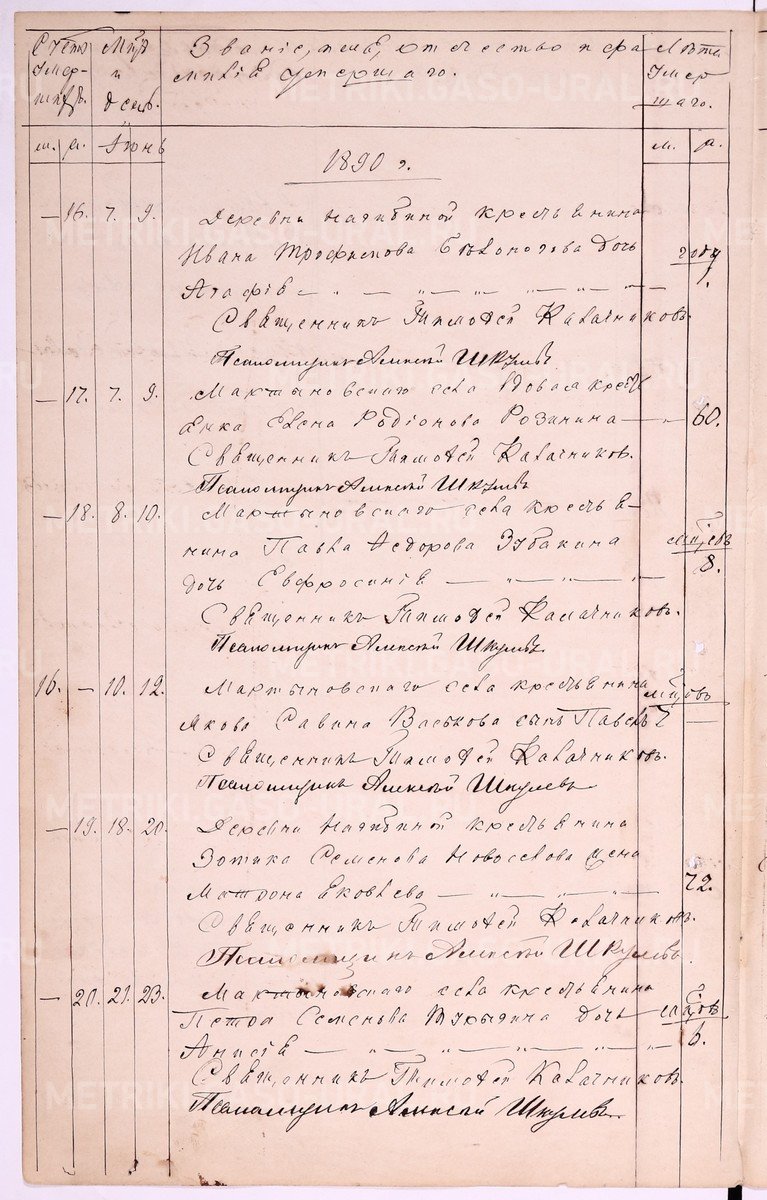 Счетъ умер-шихъ.
Мѣц. и день.
Званіе, имя, отчество и фа
милія умершаго.
Лѣта умер шаго.
м. ж. Іюнь м. ж.
1890 г.
— 16. 7. 9. Деревни Нагибиной крестьянина
Ивана Трофимова Бѣлоногова дочь году
Агафія — „ — „ — „ — „ — 1.
Священникъ Тимофей Калачниковъ.
Псаломщикъ Алексѣй Шкулевъ
— 17. 7. 9. Мартыновскаго села вдова крестья
янка Елена Родіонова Розинина — „ 60.
Священникъ Тимофей Калачниковъ.
Псаломщикъ Алексѣй Шкулевъ
— 18. 8. 10. Мартыновскаго села крестья-
нина Павла Федорова Зубакина мѣцевъ
дочь Евфросинія — „ — „ — 8.
Священникъ Тимофей Калачниковъ.
Псаломщикъ Алексѣй Шкулевъ
16. — 10. 12. Мартыновскаго села крестьянина мѣцовъ
Якова Савина Васькова сынъ Павелъ 7 —
Священникъ Тимофей Калачниковъ.
Псаломщикъ Алексѣй Шкулевъ
— 19. 18. 20. Деревни Нагибиной крестьянина
Зотика Семенова Новоселова жена
Матрона Яковлева — „ — „ — „ 72.
Священникъ Тимофей Калачниковъ.
Псаломщикъ Алексѣй Шкулевъ.
— 20. 21. 23. Мартыновскаго села крестьянина
Петра Семенова дочь мѣцов
Анисія — „ — „ — „ — „ — 6.
Священникъ Тимофей Калачниковъ.
Псаломщикъ Алексѣй Шкулевъ.
METRIKI.GASO-URAL.RU